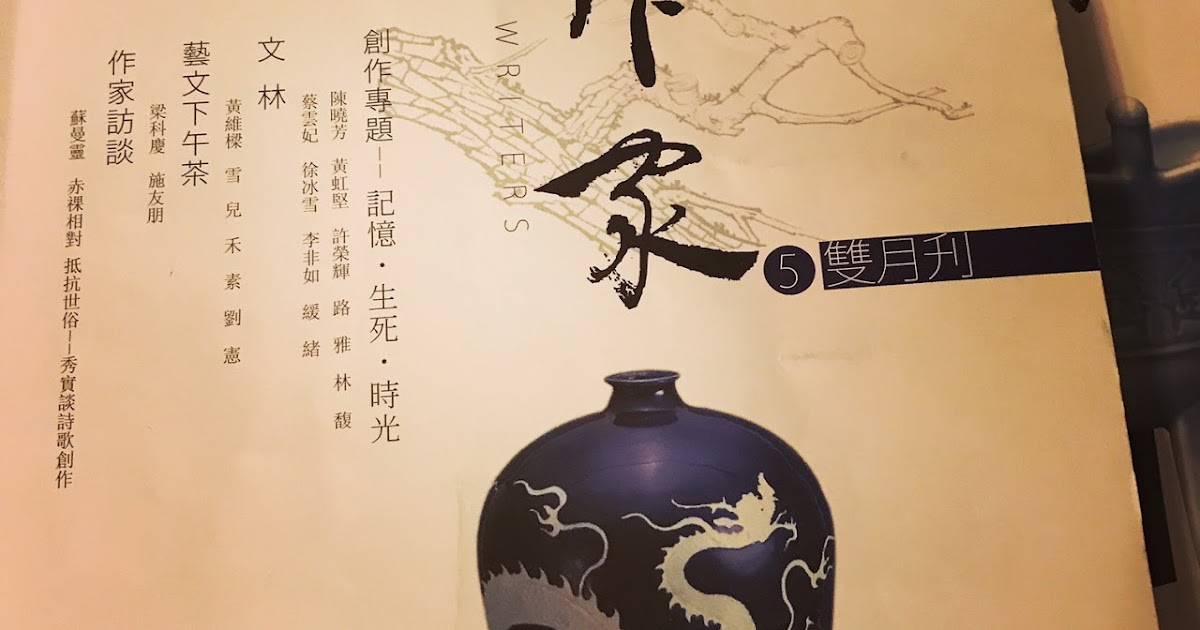 作家
WRITERS
5 雙月刊
創作專題——記憶・生死・時光
陳曉芳 黃虹堅 許榮輝 路雅 林馥
蔡雲妃 徐冰雪 李非如 緩緒
文林
黃維樑 雪兒 禾素 劉憲
藝文下午茶
梁科慶 施友朋
作家訪談
蘇曼靈 赤裸相對 抵抗世俗——秀實談詩歌創作